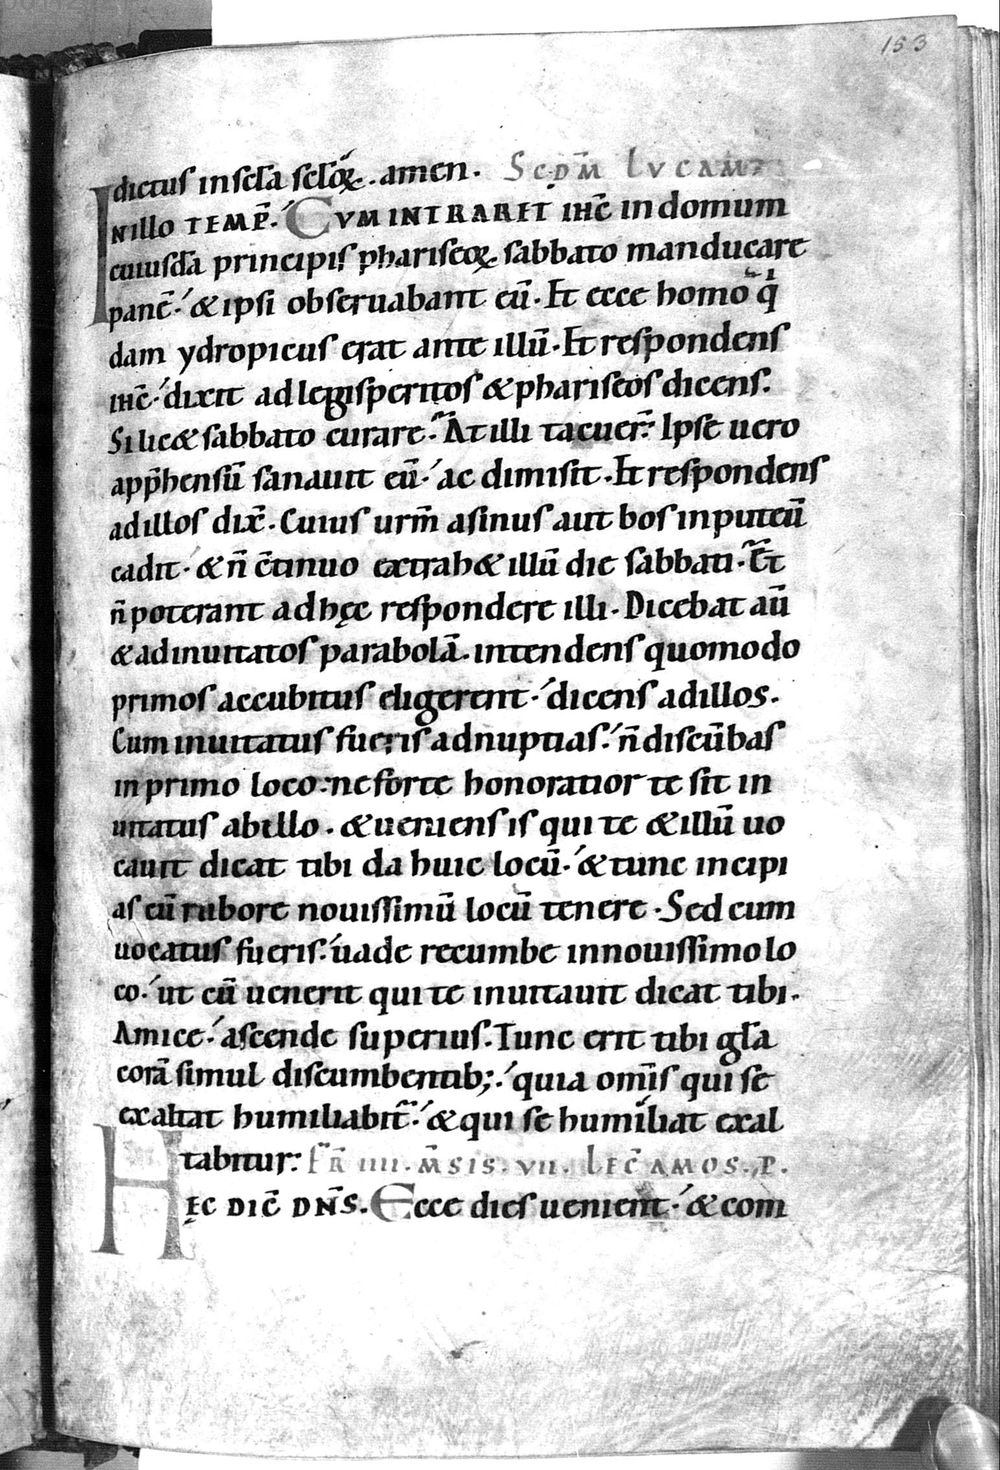 153
dictus in scła sclōꝝ. amen. Scd̄m Lvcam
Nillo TEMP̄. CVM INTRARET IHC̄ in domum
cuiusdā principis phariseoꝝ sabbato manducare
panē. & ipsi obseruabant eū. Et ecce homo q̇
dam ydropicus erat ante illū. Et respondens
ihc̄. dixit ad legisperitos & phariseos dicens.
Si lic& sabbato curare. At illi tacuer̄. Ipse uero
app̄hensū sanauit eū. ac dimisit. Et respondens
ad illos dix̄. Cuius urm̄ asinus aut bos in puteū
cadit. & n̄ c̄tinuo extrah& illū die sabbati. Et
n̄ poterant ad hęc respondere illi. Dicebat aū
& ad inuitatos parabolā. intendens quomodo
primos accubitus eligerent. dicens ad illos.
Cum inuitatus fueris ad nuptias. n̄ discūbas
in primo loco. ne forte honoratior te sit in
uitatus ab illo. & ueniens is qui te & illū uo
cauit dicat tibi da huic locū. & tunc incipi
as cū rubore nouissimū locū tenere. Sed cum
uocatus fueris. uade recumbe in nouissimo lo
co. ut cū uenerit qui te inuitauit dicat tibi.
Amice. ascende superius. Tunc erit tibi gła
corā simul discumbentib;. quia om̄is qui se
exaltat humiliabit̄. & qui se humiliat exal
tabitur. FR̄ IIII. M̄SIS. VII. LEC̄ AMOS. P.
HĘC DIC̄ DN̄S. Ecce dies uenient. & com